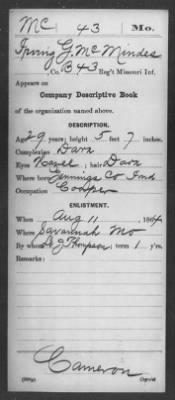 Mc 43 Mo.
Irving G. McMindes
, Co. B 43 Reg't Missouri Inf.
Appears on
Company Descriptive Book
of the organization named above.
DESCRIPTION.
Age 29 years; height 5 feet 7 inches.
Complexion Dark
Eyes Hazel; hair Dark
Where born Jennings Co Ind
Occupation Cooper
ENLISTMENT.
When Aug 11, 1864
Where Savannah Mo
By whom Thompson; term 1 y'rs.
Remarks:
Cameron
Copyist